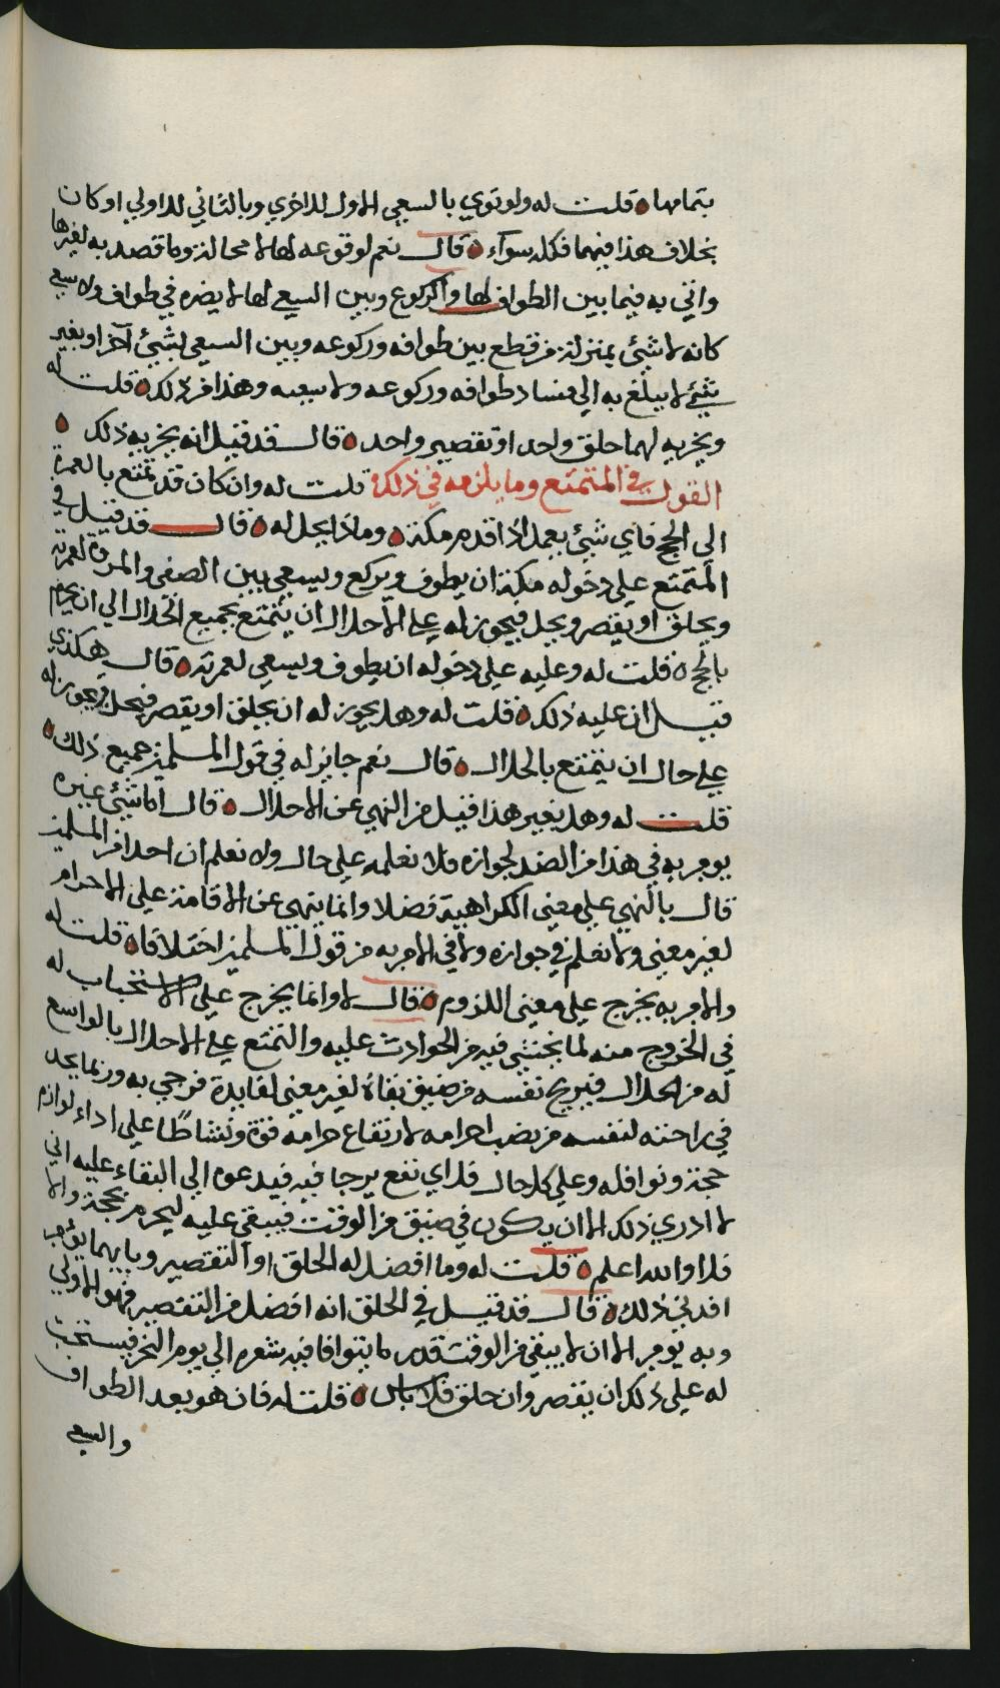 بتمامها قلت له ولو نوي بالسعي الاول للاخري وبالثاني للاولي او كان
بخلاف هذا فيهما فكله سوآء قال نعم لوقوعه لها لا محالة وما قصد به لغيرها
واتي به فيما بين الطواف لها والركوع وبين السعي لها لا يضره في طواف ولا سعي
كانه لا شيئ بمنزلة من قطع بين طوافه وركوعه وبين السعي لشيئ آخر او بغير
شيئ لا يبلغ به الي فساد طوافه وركوعه ولا سعيه وهذا من ذلك قلت له
ويجزيه لهما حلق واحد او تقصير واحد قال قد قيل انه يجزيه ذلك
القول في المتمتع وما يلزمه في ذلك قلت له وان كان قد تمتع بالعمرة
الي الحج فاي شيئ يعمل اذا قدم مكة وماذا يحل له قال قد قيل في
المتمتع علي دخوله مكة ان يطوف ويركع ويسعي بين الصفي والمروة لعمرته
ويحلق او يقصر ويحل فيجوز له علي الاحلال ان يتمتع بجميع الحلال الي ان يحرم
بالحج قلت له وعليه علي دخوله ان يطوف ويسعي لعمرته قال هكذي
قيل ان عليه ذلك قلت له وهل يجوز له ان يحلق او يقصر فيحل ويجوز له
علي حال ان يتمتع بالحلال قال نعم جايز له في قول المسلمين جميع ذلك
قلت له وهل بغير هذا قيل من النهي عن الاحلال قال اما شيئ غيره
يومر به في هذا من الضد لجوازه فلا نعلمه علي حال ولا نعلم ان احدا من المسلمين
قال بالنهي علي معني الكراهية فضلا وانما ينهي عن الاقامة علي الاحرام
لغير معني ولا نعلم في جوازه ولا في الامر به من قول المسلمين اختلافا قلت له
والامر به يخرج علي معني اللزوم قال لا وانما يخرج علي الاستحباب له
في الخروج منه لما يخشي فيه من الحوادث عليه والتمتع علي الاحلال بالواسع
له من الحلال فيريح نفسه من ضيق بقاه لغير معني لفايدة فرجي به وربما يجد
في راحته لنفسه من نصب احرامه لارتفاع حرامه قوة ونشاطا علي اداء لوازم
حجة ونوافله وعلي كل حال فلاي نفع يرجا فيه فيدعوه الي البقاء عليه اني
لا ادري ذلك الا ان يكون في ضيق من الوقت فيبقي عليه ليحرم بحجة والا
فلا والله اعلم قلت له وما افضل له الحلق او التقصير وبايهما يؤمر
افدني ذلك قال قد قيل في الحلق انه افضل من التقصير فهو الاولي
وبه يومر الا ان لا يبقي من الوقت قدر ما يتوافا فيه شعره الي يوم النحر فيستحب
له علي ذلك ان يقصر وان حلق فلا باس قلت له فان هو بعد الطواف
والسعي